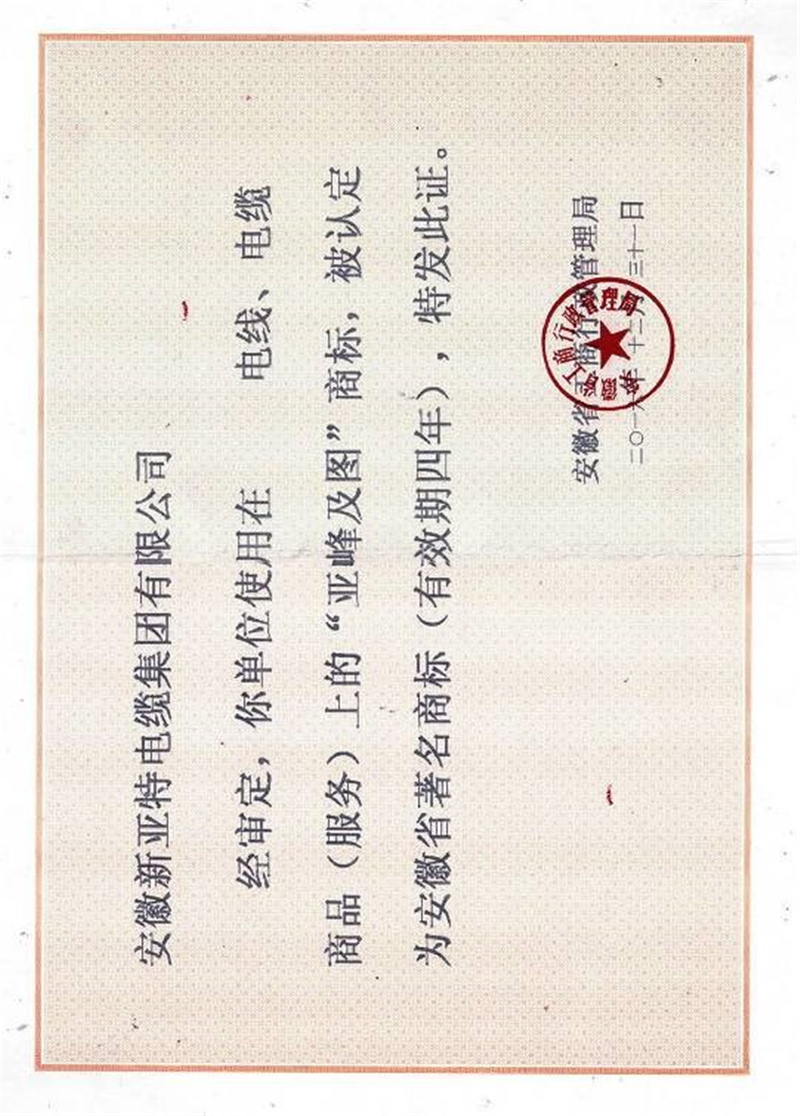 安徽新亚特电缆集团有限公司
经审定，你单位使用在 电线、电缆
商品（服务）上的“亚峰及图”商标，被认定
为安徽省著名商标（有效期四年），特发此证。
安徽省工商行政管理局
二〇一六年十二月三十一日
安徽省工商行政管理局